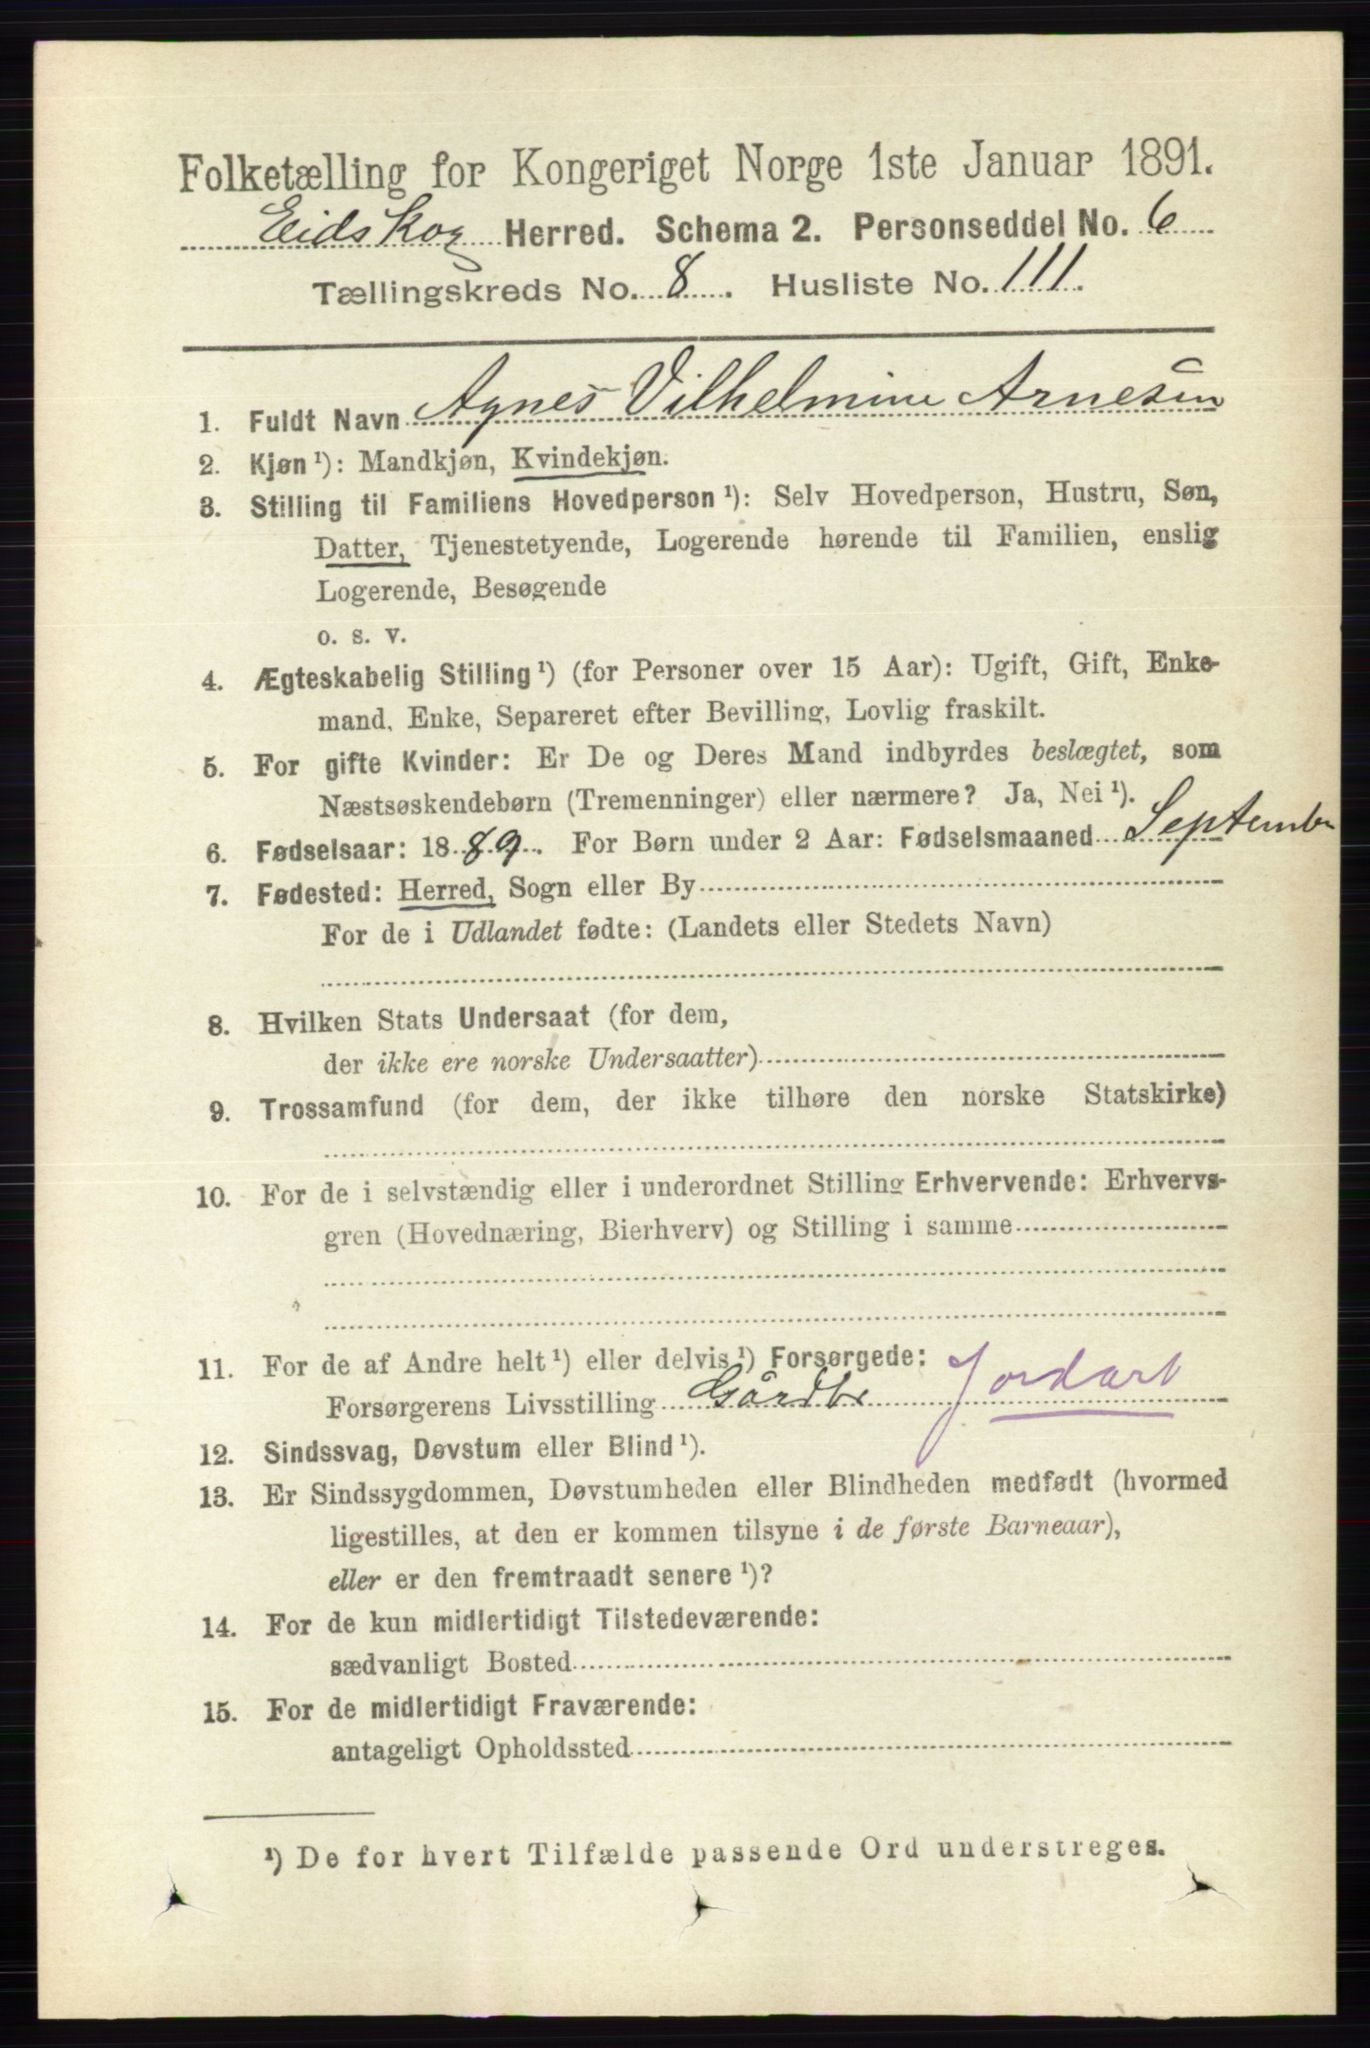 Folketælling for Kongeriget Norge 1ste Januar 1891.
Eidskog Herred. Schema 2. Personseddel No. 6
Tællingskreds No. 8. Husliste No. 111.
1. Fuldt Navn Agnes Vilhelmine Arnesen
2. Kjøn ¹): Mandkjøn, Kvindekjøn.
3. Stilling til Familiens Hovedperson ¹): Selv Hovedperson, Hustru, Søn,
Datter, Tjenestetyende, Logerende hørende til Familien, enslig
Logerende, Besøgende
o. s. v.
4. Ægteskabelig Stilling ¹) (for Personer over 15 Aar): Ugift, Gift, Enke-
mand, Enke, Separeret efter Bevilling, Lovlig fraskilt.
5. For gifte Kvinder: Er De og Deres Mand indbyrdes beslægtet, som
Næstsøskendebørn (Tremenninger) eller nærmere? Ja, Nei ¹).
6. Fødselsaar: 1889. For Børn under 2 Aar: Fødselsmaaned September
7. Fødested: Herred, Sogn eller By
For de i Udlandet fødte: (Landets eller Stedets Navn)
8. Hvilken Stats Undersaat (for dem,
der ikke ere norske Undersaatter)
9. Trossamfund (for dem, der ikke tilhøre den norske Statskirke)
10. For de i selvstændig eller i underordnet Stilling Erhvervende: Erhvervs-
gren (Hovednæring, Bierhverv) og Stilling i samme
11. For de af Andre helt ¹) eller delvis ¹) Forsørgede:
Forsørgerens Livsstilling Gårdbr Jordarb
12. Sindssvag, Døvstum eller Blind ¹).
13. Er Sindssygdommen, Døvstumheden eller Blindheden medfødt (hvormed
ligestilles, at den er kommen tilsyne i de første Barneaar),
eller er den fremtraadt senere ¹)?
14. For de kun midlertidigt Tilstedeværende:
sædvanligt Bosted
15. For de midlertidigt Fraværende:
antageligt Opholdssted
¹) De for hvert Tilfælde passende Ord understreges.